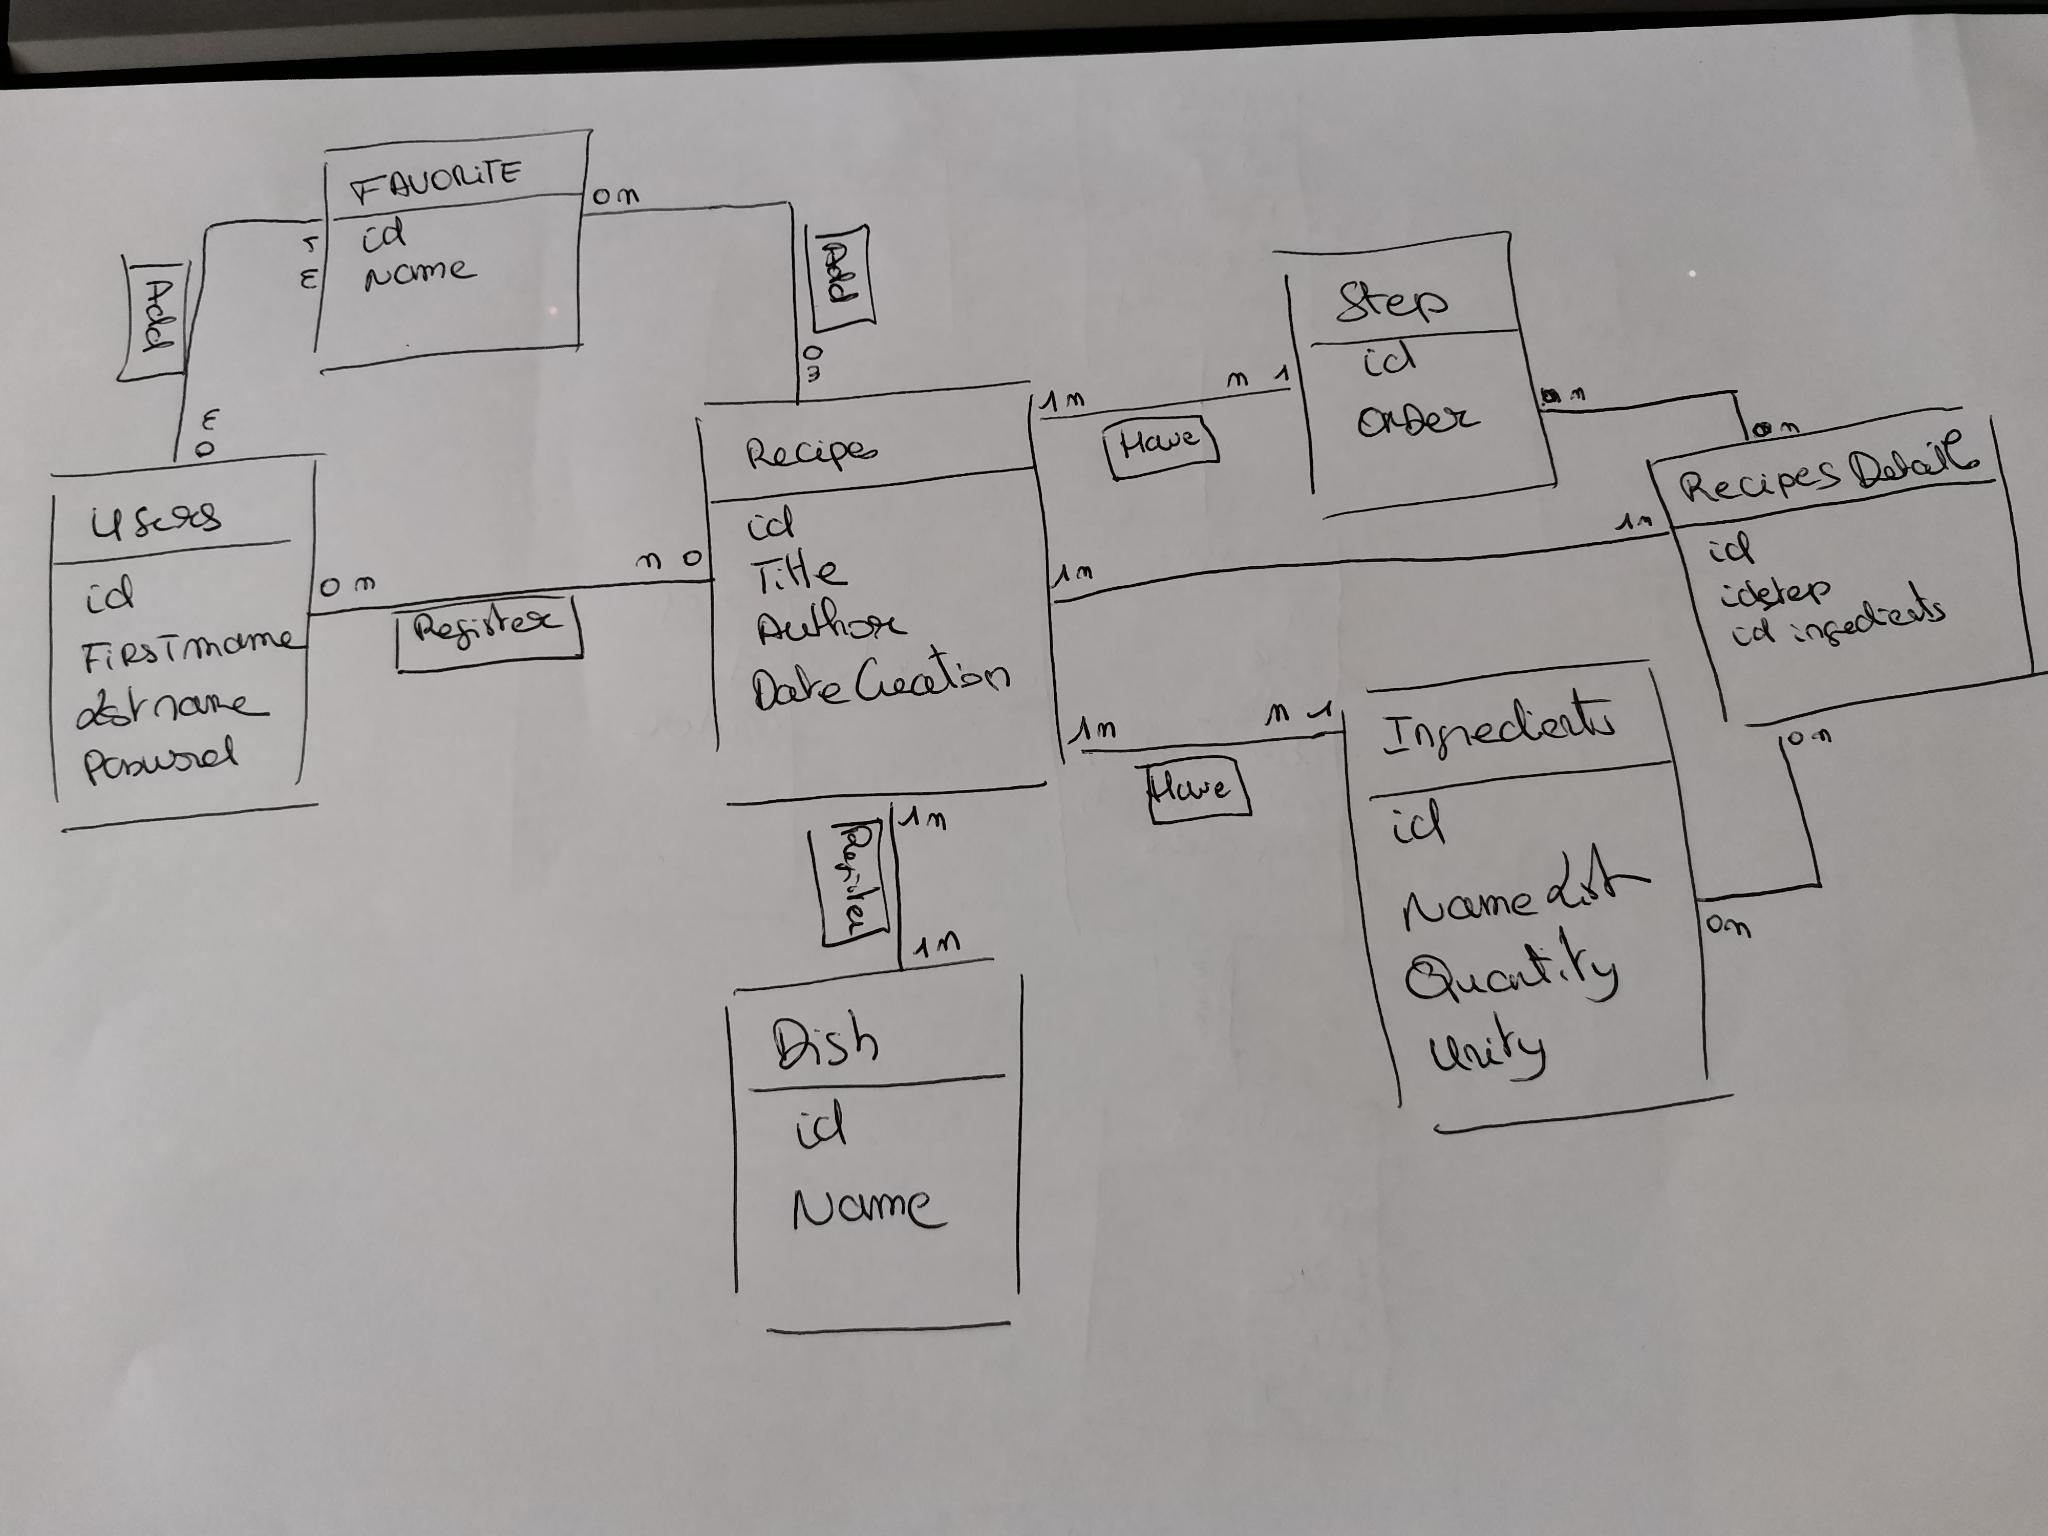 FAVORITE
id
Name
0 n
1
n
Add
Add
0
n
n
0
Users
id
Firstname
Lastname
0 n
Register
n 0
Recipes
id
Title
Author
Date Creation
1 n
n 1
Have
Step
id
Order
n
n
Recipes Details
id
idstep
id ingedients
1 n
1 n
0 n
1 n
n 1
Have
Ingredients
id
Name List
Quantity
Unity
0 n
1 n
Register
1 n
Dish
id
Name